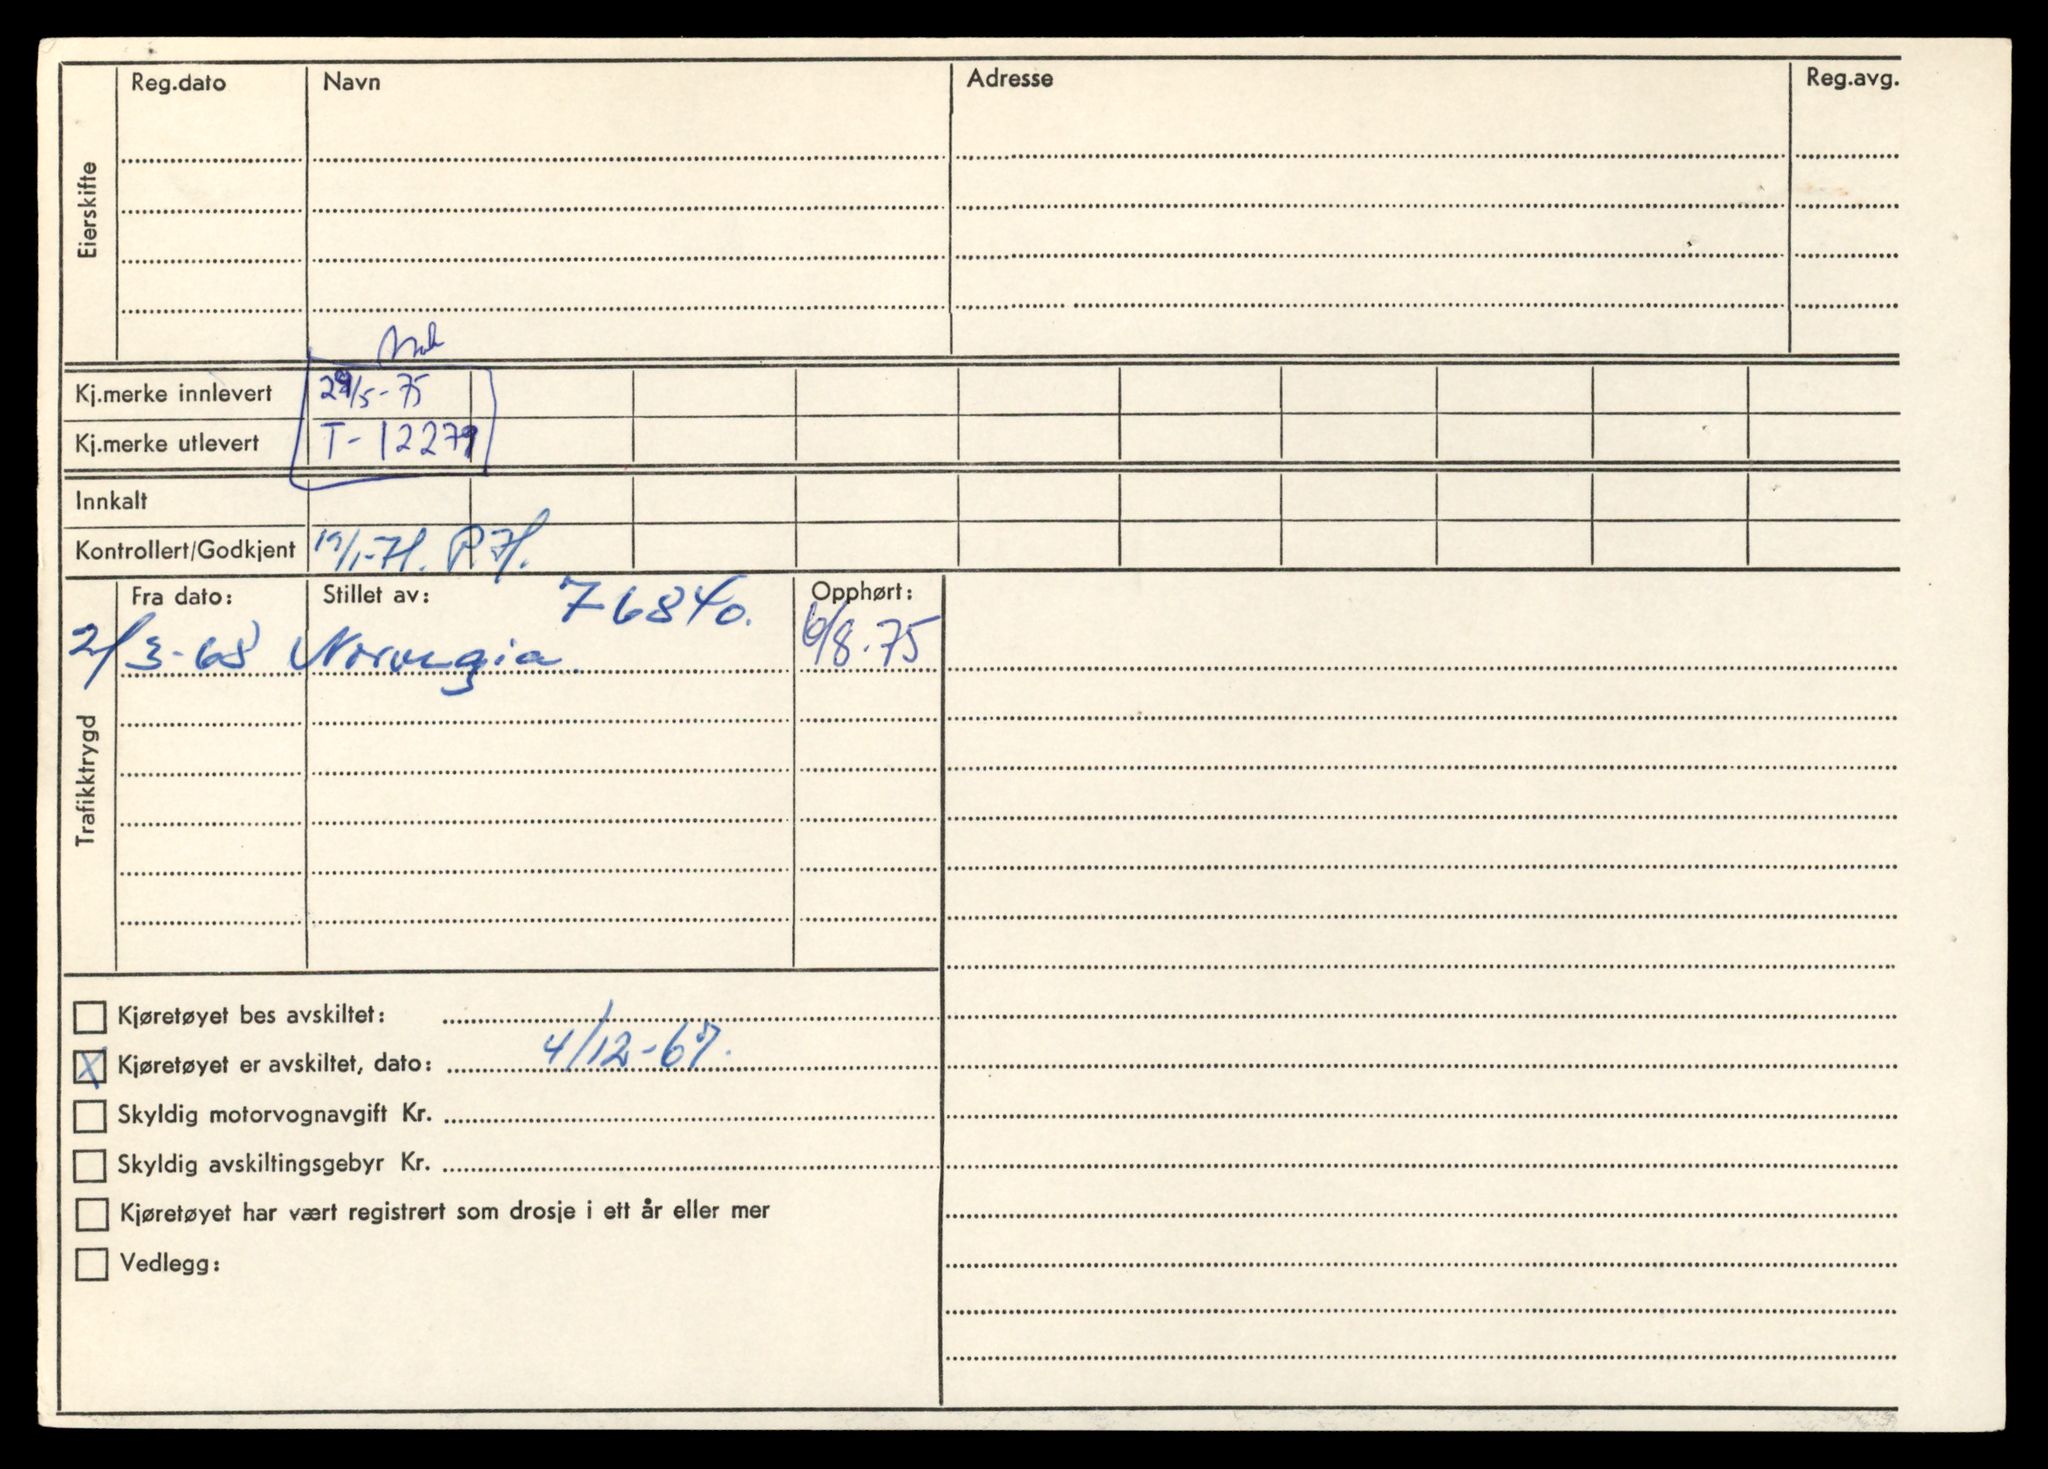 Reg.dato Navn Adresse Reg.avg.
Eierskifte
Kj.merke innlevert 29/5-75
Kj.merke utlevert T-12279
Innkalt
Kontrollert/Godkjent 19/1-71.
Fra dato: Stillet av: 76840. Opphørt:
2/3-68 Norvegia 6/8.75
Trafikktrygd
Kjøretøyet bes avskiltet:
X Kjøretøyet er avskiltet, dato: 4/12-67.
Skyldig motorvognavgift Kr.
Skyldig avskiltingsgebyr Kr.
Kjøretøyet har vært registrert som drosje i ett år eller mer
Vedlegg: